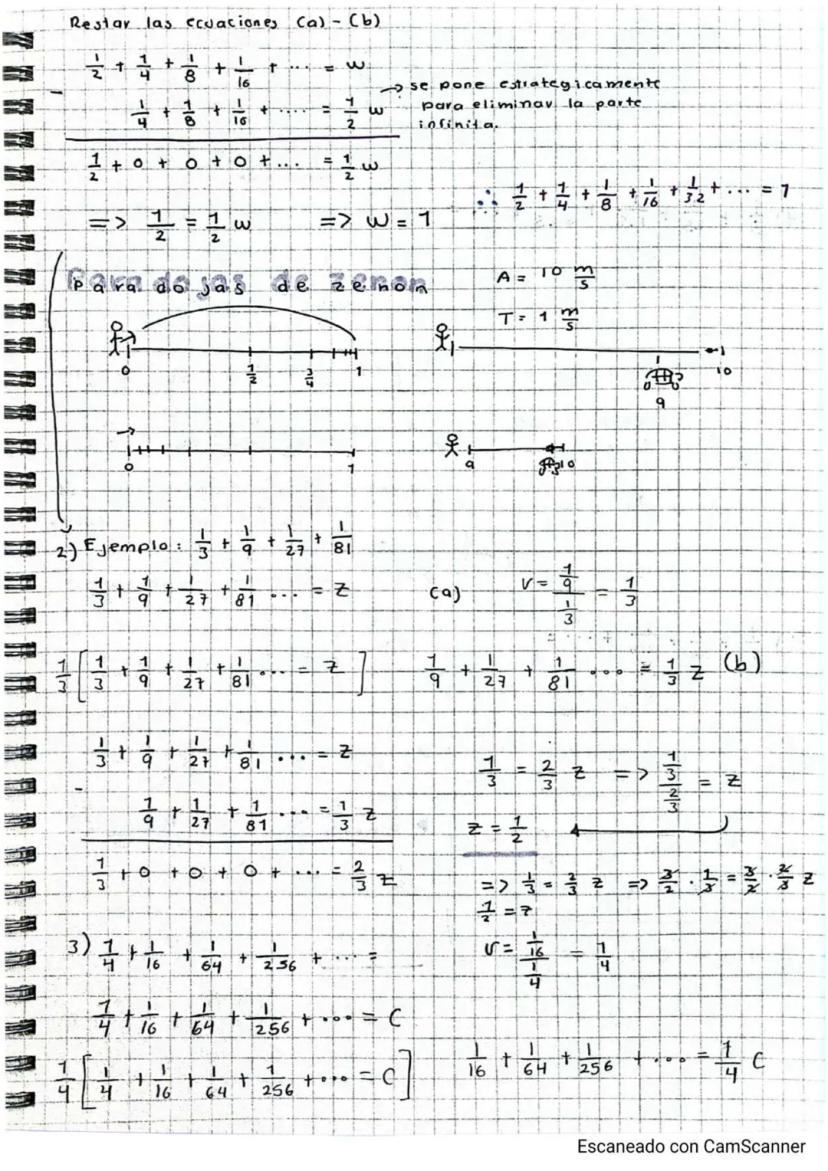 Restar las ecuaciones (a) - (b)
1/2 + 1/4 + 1/8 + 1/16 + ... = w
- 1/4 + 1/8 + 1/16 + .... = 1/2 w
→ se pone estrategicamente
para eliminar la parte
infinita.
1/2 + 0 + 0 + 0 + ... = 1/2 w
=> 1/2 = 1/2 w => w = 1
∴ 1/2 + 1/4 + 1/8 + 1/16 + 1/32 + ... = 1
Paradojas de zenon
A = 10 m/s
T = 1 m/s
0 1/2 3/4 1
9 10
0 1
9 10
2) Ejemplo: 1/3 + 1/9 + 1/27 + 1/81
1/3 + 1/9 + 1/27 + 1/81 ... = z (a) r = 1/9 / 1/3 = 1/3
1/3 [ 1/3 + 1/9 + 1/27 + 1/81 ... = z ] 1/9 + 1/27 + 1/81 ... = 1/3 z (b)
1/3 + 1/9 + 1/27 + 1/81 ... = z
- 1/9 + 1/27 + 1/81 ... = 1/3 z
1/3 + 0 + 0 + 0 + ... = 2/3 z
1/3 = 2/3 z => 1/3 / 2/3 = z
z = 1/2
=> 1/3 = 2/3 z => 3/2 · 1/3 = 3/2 · 2/3 z
1/2 = z
3) 1/4 + 1/16 + 1/64 + 1/256 + ... = r = 1/16 / 1/4 = 1/4
1/4 + 1/16 + 1/64 + 1/256 + ... = C
1/4 [ 1/4 + 1/16 + 1/64 + 1/256 + ... = C ] 1/16 + 1/64 + 1/256 + ... = 1/4 C
Escaneado con CamScanner